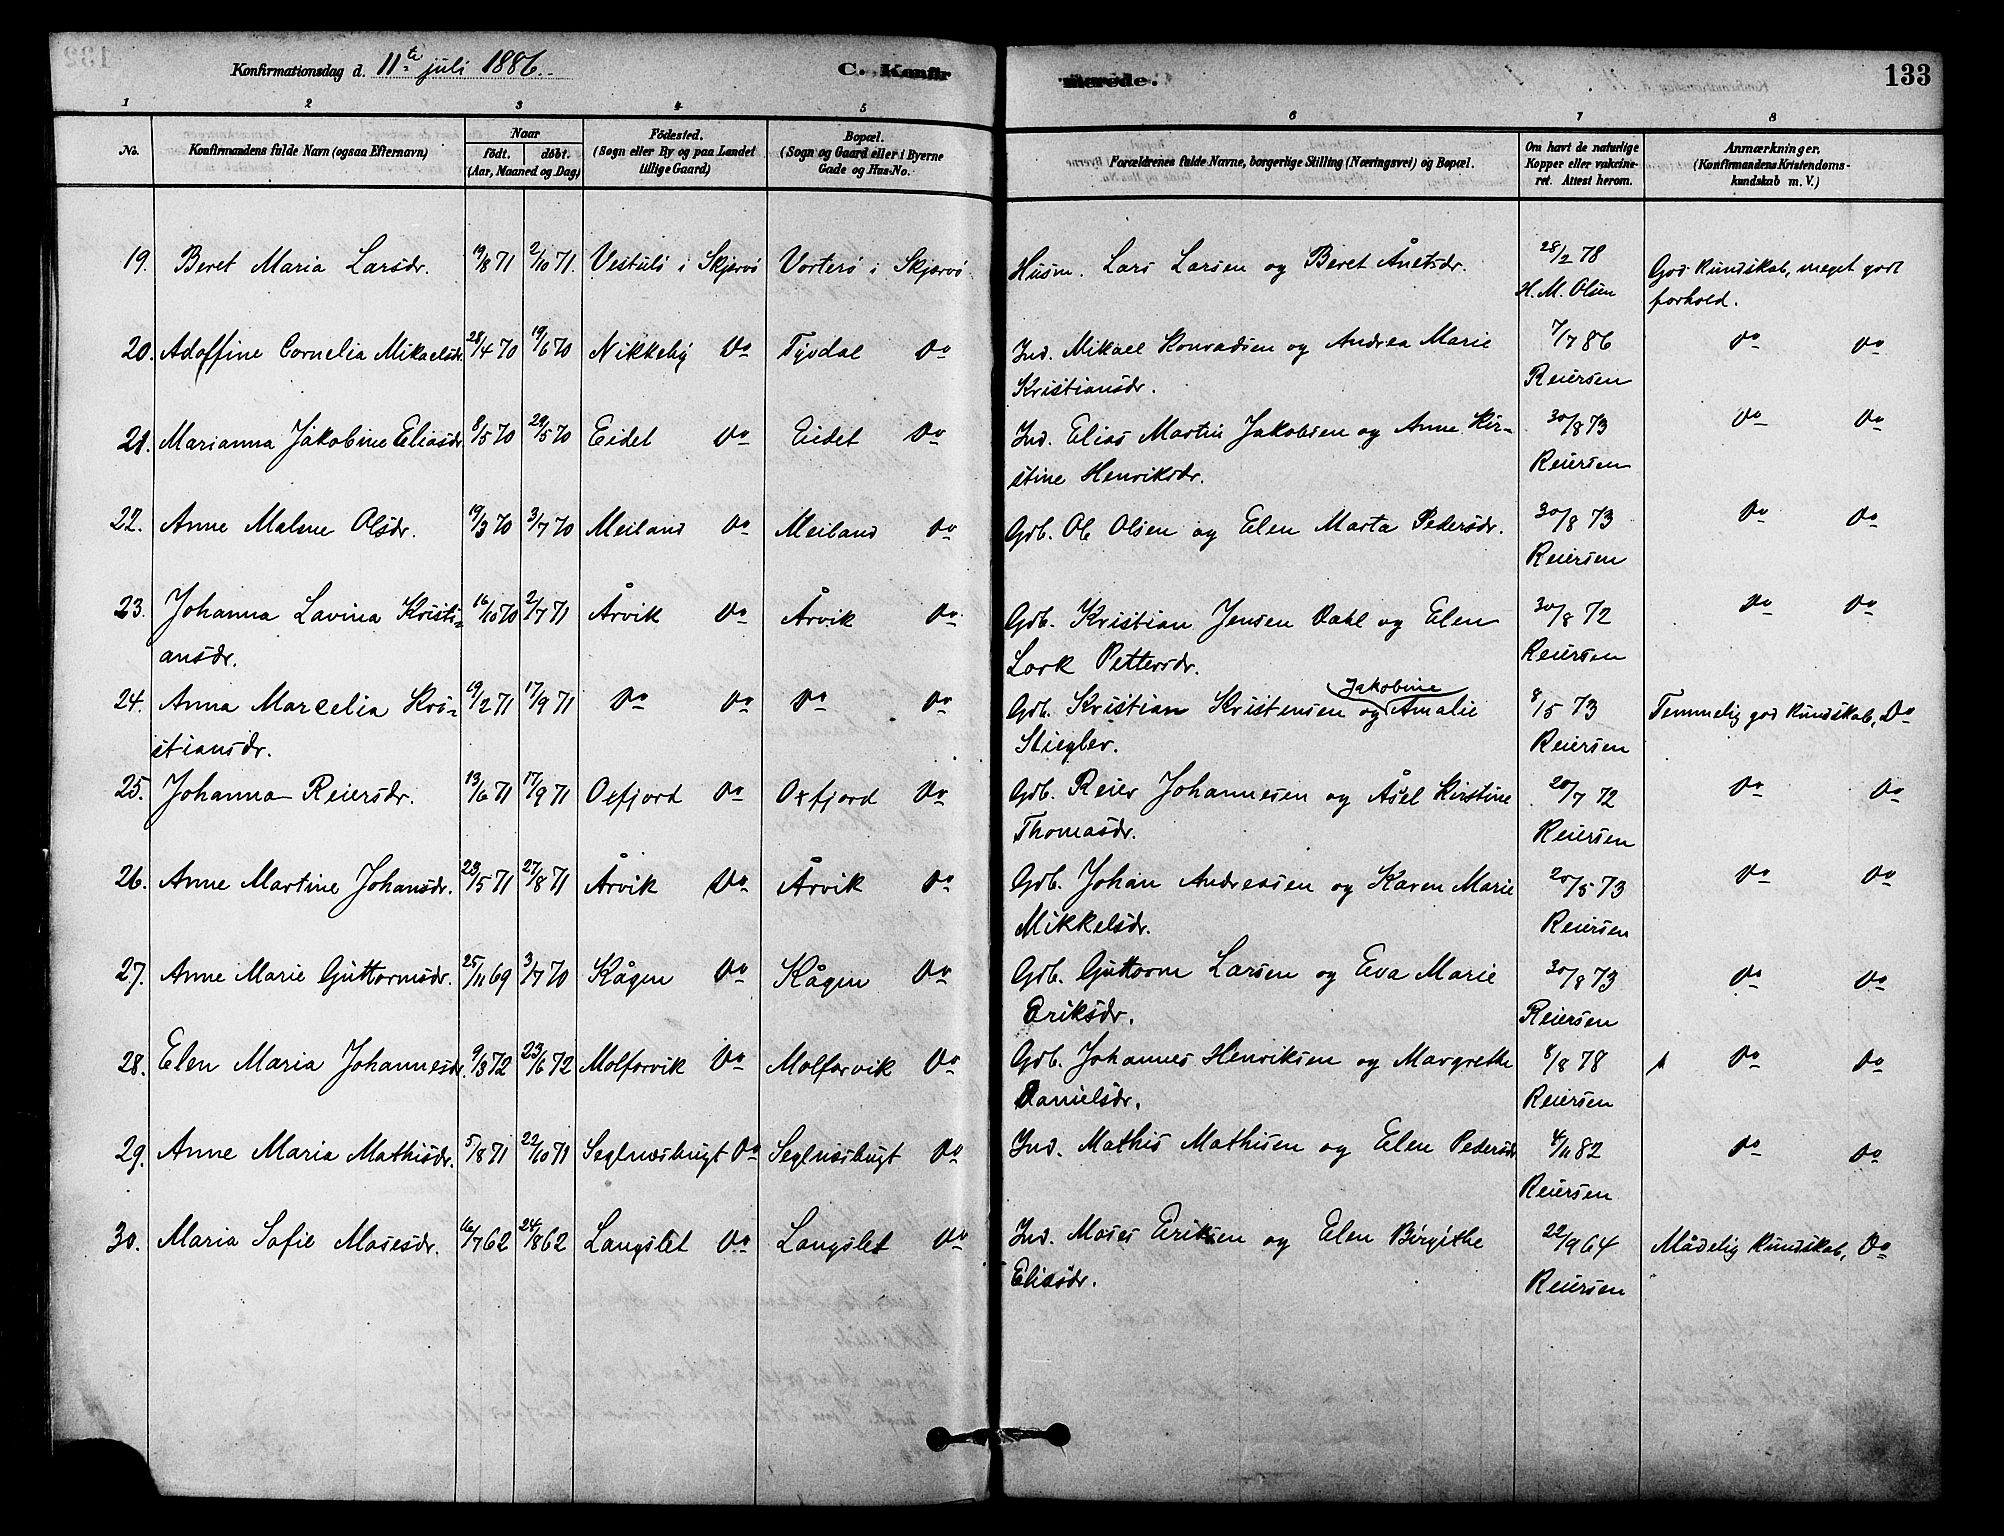 Konfirmationsdag d. 11te juli 1886. C. Konfirmerede. 133
1 2 3 4 5 6 7 8
No. Konfirmandens fulde Navn (ogsaa Efternavn) Naar födt. döbt. (Aar, Maaned og Dag) Födested. (Sogn eller By og paa Landet tillige Gaard) Bopæl. (Sogn og Gaard eller i Byerne Gade og Hus-No. Forældrenes fulde Navne, borgerlige Stilling (Næringsvei) og Bopæl. Om havt de naturlige Kopper eller vakcineret. Attest herom. Anmærkninger. (Konfirmandens Kristendomskundskab m. V.)
19. Beret Maria Larsdr. 19/8 71 2/10 71. Vestulö i Skjervö Vorterö i Skjervö. Husm. Lars Larsen og Beret Ånetsdr. 28/2 78 God Kundskab, meget godt
H. M. Olsen forhold.
20. Adolfine Cornelia Mikaelsdr 28/4 70 19/6 70 Nikkeby Do Tyvdal Do Ind. Mikael Konradsen og Andrea Marie 7/7 86 Do Do
Kristiansdr. Reiersen
21. Marianna Jakobine Eliasdr 8/5 70 29/5 70 Eidet Do Eidet Do Ind. Elias Martin Jakobsen og Anne Kir- 30/8 73 Do Do
stine Henriksdr. Reiersen
22. Anne Malene Olsdr. 19/3 70 3/7 70 Meiland Do Meiland Do Gdb. Ole Olsen og Elen Marta Pedersdr. 30/8 73 Do Do
Reiersen
23. Johanna Lavina Kristi- 16/10 70 2/7 71 Årvik Do Årvik Do Gdb. Kristian Jensen Dahl og Elen 30/8 72 Do Do
ansdr. Lork Pettersdr. Reiersen
24. Anna Marcelia Kri- 19/2 71 17/9 71 Do Do Do Do Gdb. Kristian Kristensen og Jakobine Amalie 8/5 73 Temmelig god Kundskab, Do
stiansdr. Stiegler. Reiersen
25. Johanna Reiersdr. 13/6 71 17/9 71 Oxfjord Do Oxfjord Do Gdb. Reier Johannesen og Åsel Kirstine 20/7 72 Do Do
Thomasdr. Reiersen
26. Anne Martine Johansdr. 23/5 71 27/8 71 Årvik Do Årvik Do Gdb. Johan Andreasen og Karen Marie 20/5 73 Do Do
Mikkelsdr. Reiersen
27. Anne Marie Guttormsdr. 25/11 69 3/7 70 Kågen Do Kågen Do Gdb. Guttorm Larsen og Eva Marie 30/8 73 Do Do
Eriksdr. Reiersen
28. Elen Maria Johannesdr. 9/3 72 23/6 72 Molforvik Do Molforvik Do Gdb. Johannes Henriksen og Margrethe 8/8 78 Do Do
Danielsdr. Reiersen
29. Anne Maria Mathisdr. 5/8 71 22/10 71 Seglnæsbugt Do Seglnæsbugt Do Ind. Mathis Mathisen og Elen Pedersdr 4/11 82 Do Do
Reiersen
30. Maria Sofie Mosesdr. 16/7 62 24/8 62 Langslet Do Langslet Do Ind. Moses Eriksen og Elen Birgithe 22/9 64 Mådelig Kundskab, Do
Eliasdr. Reiersen